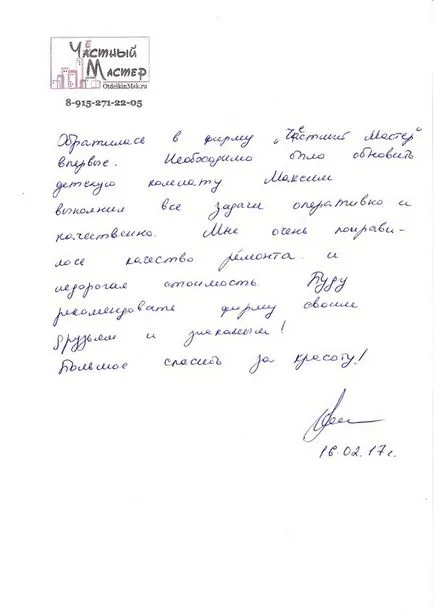 Чёстный
Мастер
OtdelkinMsk.ru
8-915-271-22-05
Обратилась в фирму „Чёстный Мастер"
впервые. Необходимо было обновить
детскую комнату. Максим
выполнил все задачи оперативно и
качественно. Мне очень понрави-
лось качество ремонта и
недорогая стоимость. Буду
рекомендовать фирму своим
друзьям и знакомым!
Большое спасибо за красоту!
16.02.17г.